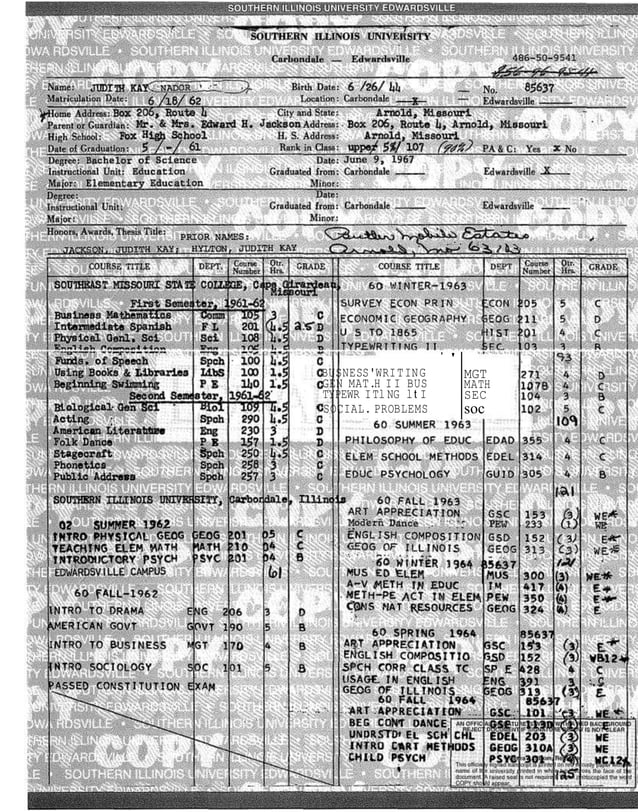 SOUTHERN ILLINOIS UNIVERSITY EDWARDSVILLE
SOUTHERN ILLINOIS UNIVERSITY
Carbondale — Edwardsville
486-50-9541
Name: JUDITH KAY NADOR
Birth Date: 6/26/44
No. 85637
Matriculation Date: 6/18/62
Location: Carbondale X Edwardsville
Home Address: Box 206, Route 4
City and State: Arnold, Missouri
Parent or Guardian: Mr. & Mrs. Edward H. Jackson
Address: Box 206, Route 4, Arnold, Missouri
High School: Fox High School
H. S. Address: Arnold, Missouri
Date of Graduation: 5/-/61
Rank in Class: upper 5%/107 (90%)
PA & C: Yes x No
Degree: Bachelor of Science
Date: June 9, 1967
Instructional Unit: Education
Graduated from: Carbondale Edwardsville X
Major: Elementary Education
Minor:
Degree:
Date:
Instructional Unit:
Graduated from: Carbondale Edwardsville
Major:
Minor:
Honors, Awards, Thesis Title:
PRIOR NAMES:
Butler Mobile Estates
JACKSON, JUDITH KAY; HYLTON, JUDITH KAY
Arnold, Mo 63123
COURSE TITLE DEPT. Course Number Qtr. Hrs. GRADE
SOUTHEAST MISSOURI STATE COLLEGE, Cape Girardeau, Missouri
First Semester, 1961-62
Business Mathematics Comm 105 3 C
Intermediate Spanish F L 201 (4.5 2.5 D
Physical Genl. Sci Sci 108 4.5 C
English Composition Eng 105 4.5 D
Funds. of Speech Spch 100 4.5 C
Using Books & Libraries LibS 100 1.5 C
Beginning Swimming P E 140 1.5 C
Second Semester, 1961-62
Biological Gen Sci Biol 109 4.5 C
Acting Spch 290 4.5 C
American Literature Eng 230 3 D
Folk Dance P E 157 1.5 D
Stagecraft Spch 250 4.5 C
Phonetics Spch 258 3 C
Public Address Spch 257 3 C
SOUTHERN ILLINOIS UNIVERSITY, Carbondale, Illinois
02 SUMMER 1962
INTRO PHYSICAL GEOG GEOG 201 05 C
TEACHING ELEM MATH MATH 210 04 C
INTRODUCTORY PSYCH PSYC 201 04 B
EDWARDSVILLE CAMPUS 61
60 FALL-1962
INTRO TO DRAMA ENG 206 3 D
AMERICAN GOVT GOVT 190 5 B
INTRO TO BUSINESS MGT 170 4 B
INTRO SOCIOLOGY SOC 101 5 B
PASSED CONSTITUTION EXAM
COURSE TITLE DEPT Course Number Qtr. Hrs. GRADE
60 WINTER-1963
SURVEY ECON PRIN ECON 205 5 C
ECONOMIC GEOGRAPHY GEOG 211 5 D
U S TO 1865 HIST 201 4 C
TYPEWRITING II SEC 103 3 B
93
BUSNESS'WRITING MGT 271 4 D
GEN MAT.H II BUS MATH 107B 4 C
TYPEWR ITlNG lt I SEC 104 3 B
SOCIAL. PROBLEMS soc 102 5 C
60 SUMMER 1963
109
PHILOSOPHY OF EDUC EDAD 355 4 C
ELEM SCHOOL METHODS EDEL 314 4 C
EDUC PSYCHOLOGY GUID 305 4 B
121
60 FALL 1963
ART APPRECIATION GSC 153 (3) WE*
Modern Dance PEW 233 (1) WE
ENGLISH COMPOSITION GSD 152 (3) E*
GEOG OF ILLINOIS GEOG 313 (3) WE*
60 WINTER 1964 85637 121
MUS ED ELEM MUS 300 (3) WE*
A-V METH IN EDUC IM 417 (4) E*
METH-PE ACT IN ELEM PEW 350 (4) E*
CONS NAT RESOURCES GEOG 324 (4) E
60 SPRING 1964 85637
ART APPRECIATION GSC 153 (3) E*
ENGLISH COMPOSITIO GSD 152 (3) WB12*
SPCH CORR CLASS TC SP E 428 4 C
USAGE IN ENGLISH ENG 391 C
GEOG OF ILLINOIS GEOG 313 (3) E
60 FALL 1964 85637
ART APPRECIATION GSC 101 (3 WE *
BEG CONT DANCE GSE 113D (1) WE
UNDRSTD EL SCH CHL EDEL 203 (3) WE
INTRO CART METHODS GEOG 310A (3) WE
CHILD PSYCH PSYC 301 (4) WC12*
125